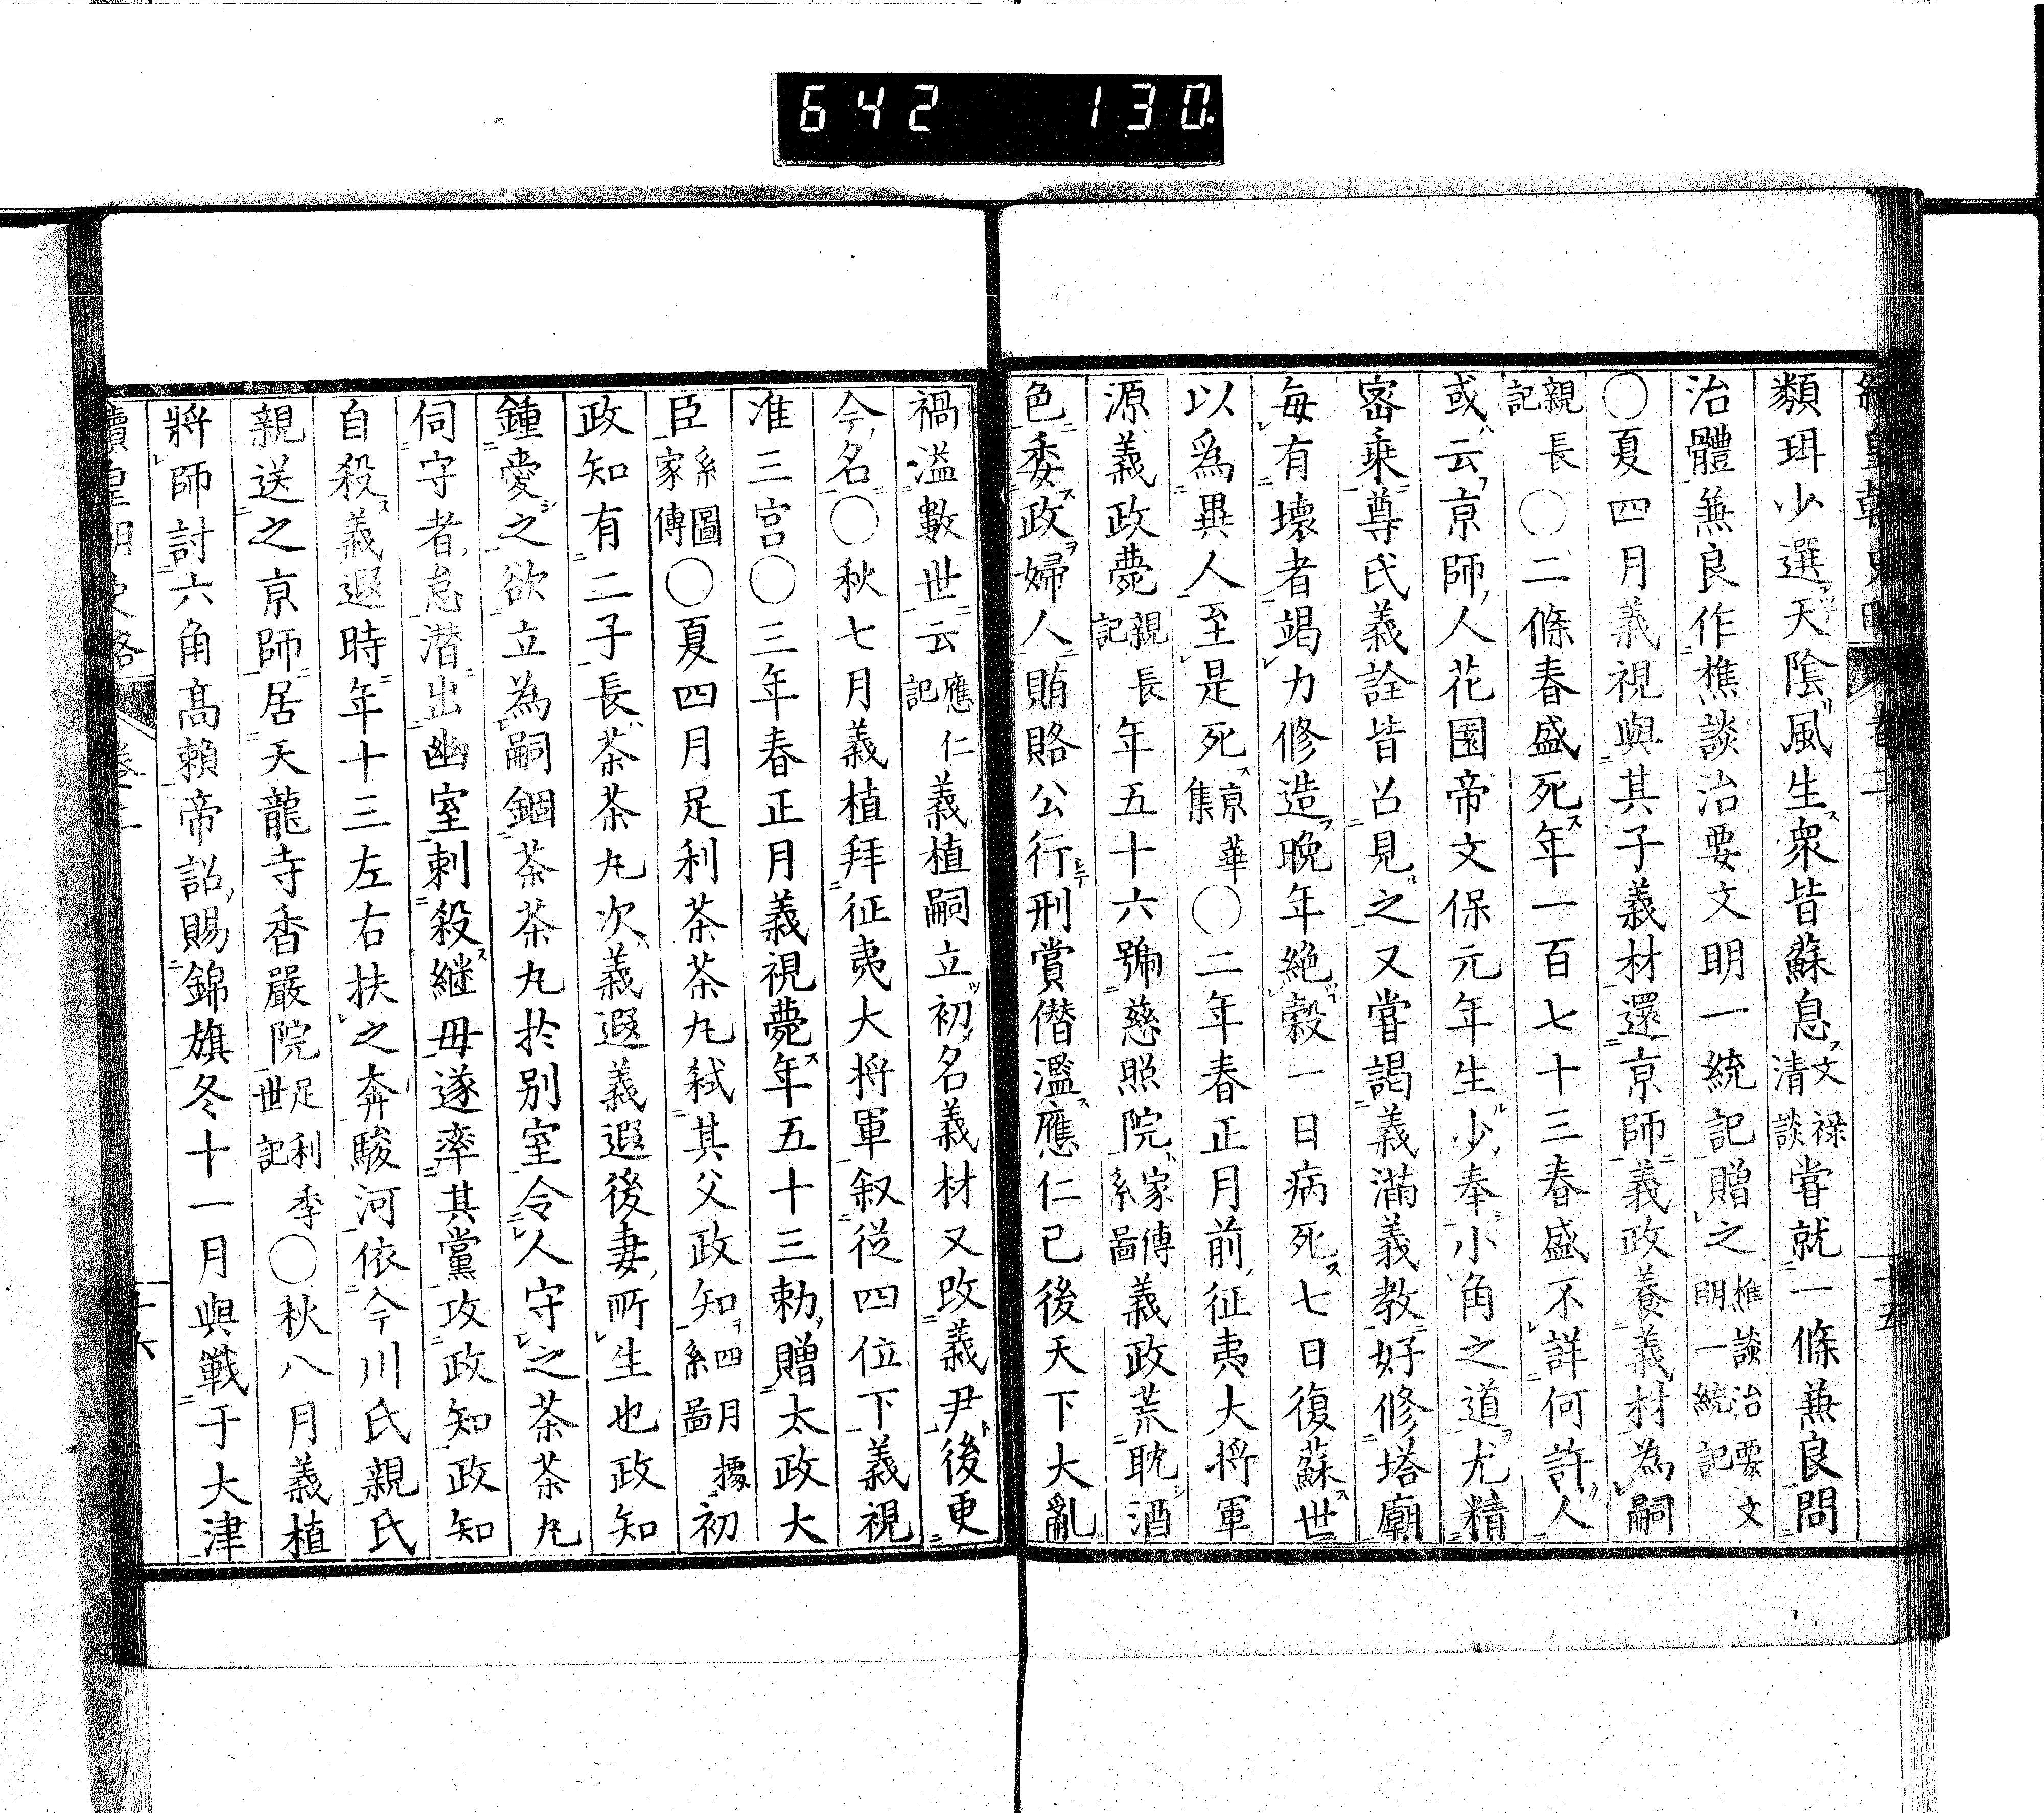 642 130
續皇朝史略 卷二 十五
纇珥少選天陰風生衆皆蘇息文祿清談嘗就一條兼良問
治體兼良作樵談治要文明一統記贈之樵談治要文明一統記
○夏四月義視與其子義材還京師義政養義材為嗣
親長記○二條春盛死年一百七十三春盛不詳何許人
或云京師人花園帝文保元年生少奉小角之道尤精
密乗尊氏義詮皆召見之又嘗謁義滿義教好修塔廟
每有壞者竭力修造晚年絶穀一日病死七日復蘇世
以爲異人至是死京華集○二年春正月前征夷大将軍
源義政薨親長記年五十六號慈照院家傳系圖義政荒耽酒
色委政婦人賄賂公行刑賞僭濫應仁已後天下大亂
禍溢數世云應仁記義植嗣立初名義材又改義尹後更
今名○秋七月義植拜征夷大将軍叙從四位下義視
准三宮○三年春正月義視薨年五十三勅贈太政大
臣系圖家傳○夏四月足利茶茶丸弑其父政知四月據系圖初
政知有二子長茶茶丸次義遐義遐後妻所生也政知
鍾愛之欲立為嗣錮茶茶丸於別室令人守之茶茶丸
伺守者怠潛出幽室刺殺繼母遂率其黨攻政知政知
自殺義遐時年十三左右扶之奔駿河依今川氏親氏
親送之京師居天龍寺香嚴院足利季世記○秋八月義植
將師討六角高賴帝詔賜錦旗冬十一月與戰于大津
續皇朝史略 卷二 十六